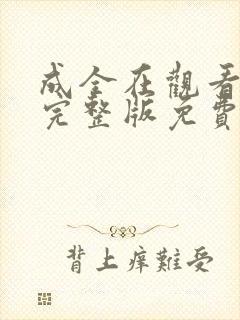 成全在觀看
完整版免費
背上痒難受